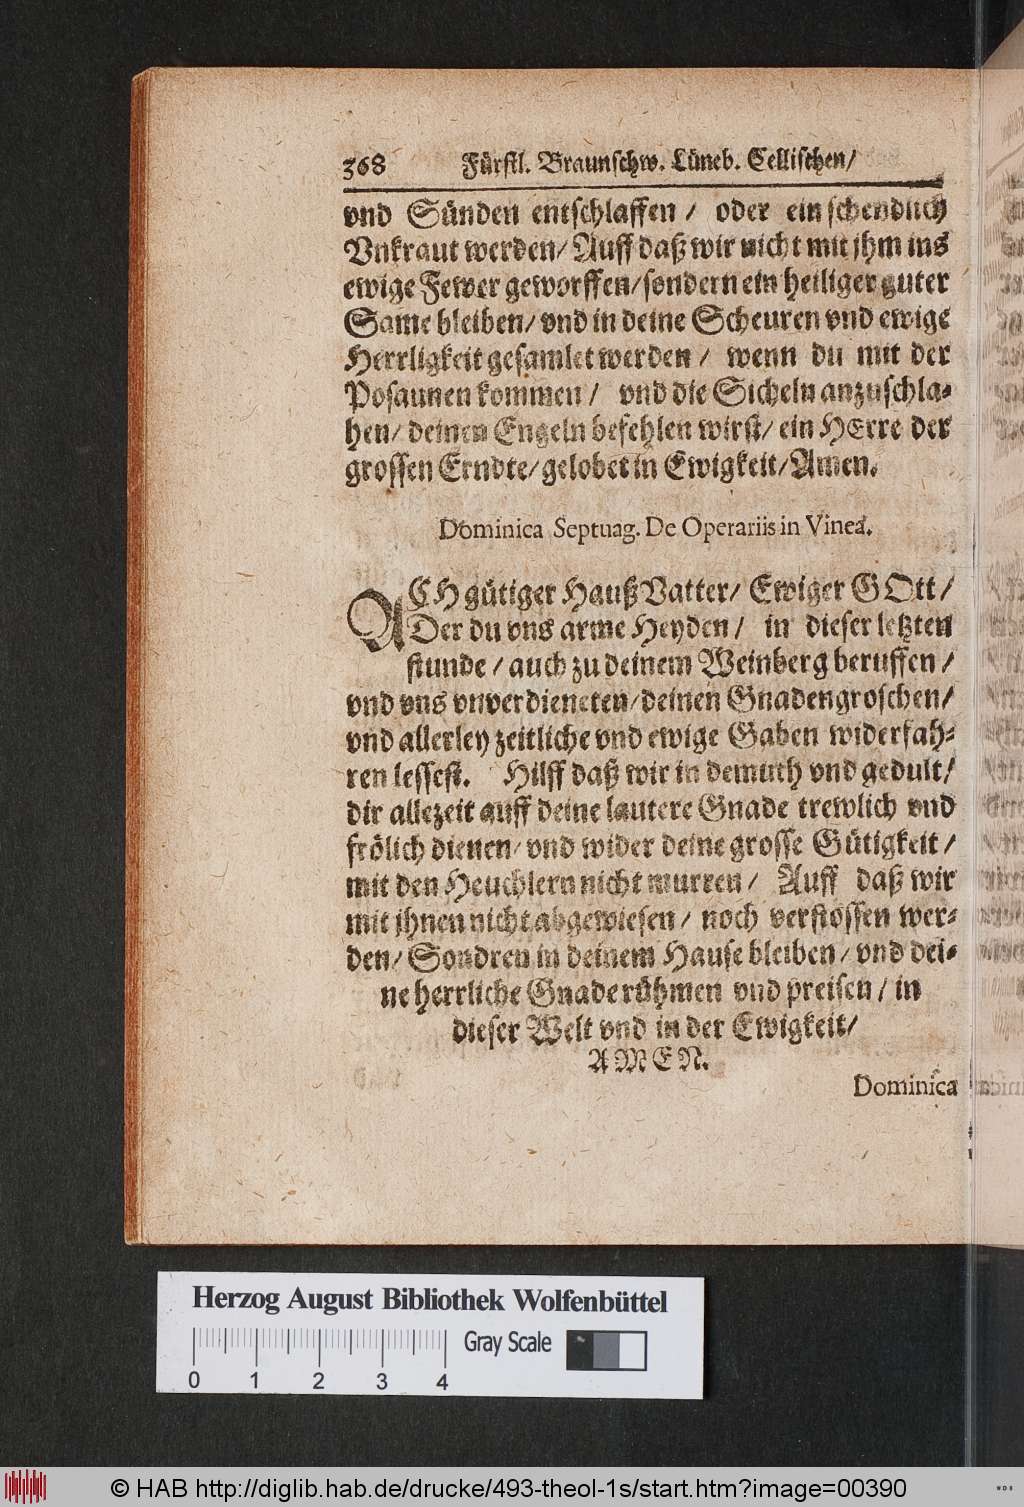 368 Fürstl. Braunschw. Lüneb. Cellischen/
vnd Sünden entschlaffen / oder ein schendlich
Vnkraut werden/ Auff daß wir nicht mit jhm ins
ewige Fewer geworffen/ sondern ein heiliger guter
Same bleiben/ vnd in deine Scheuren vnd ewige
Herrligkeit gesamlet werden / wenn du mit der
Posaunen kommen / vnd die Sicheln anzuschla-
hen/ deinen Engeln befehlen wirst/ ein HErre der
grossen Erndte/ gelobet in Ewigkeit/ Amen.
Dominica Septuag. De Operariis in Vinea.
ACH gütiger Hauß Vatter/ Ewiger GOtt /
Der du vns arme Heyden / in dieser letzten
stunde / auch zu deinem Weinberg beruffen /
vnd vns vnverdieneten/ deinen Gnadengroschen/
vnd allerley zeitliche vnd ewige Gaben widerfah-
ren lessest. Hilff daß wir in demuth vnd gedult/
dir allezeit auff deine lautere Gnade trewlich vnd
frölich dienen/ vnd wider deine grosse Gütigkeit /
mit den Heuchlern nicht murren / Auff daß wir
mit jhnen nicht abgewiesen / noch verstossen wer-
den/ Sondren in deinem Hause bleiben / vnd dei-
ne herrliche Gnade rühmen vnd preisen / in
dieser Welt vnd in der Ewigkeit/
AMEN.
Dominica
Herzog August Bibliothek Wolfenbüttel
Gray Scale
0 1 2 3 4
© HAB http://diglib.hab.de/drucke/493-theol-1s/start.htm?image=00390